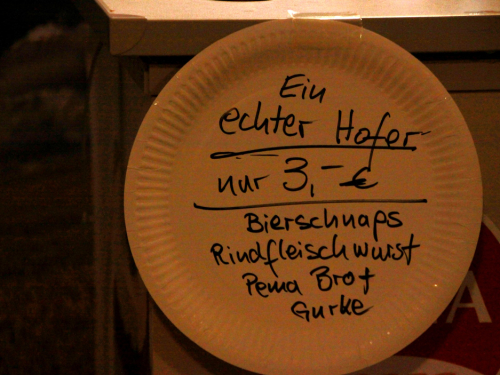 Ein
echter Hofer
nur 3,- €
Bierschnaps
Rindfleischwurst
Pema Brot
Gurke
A